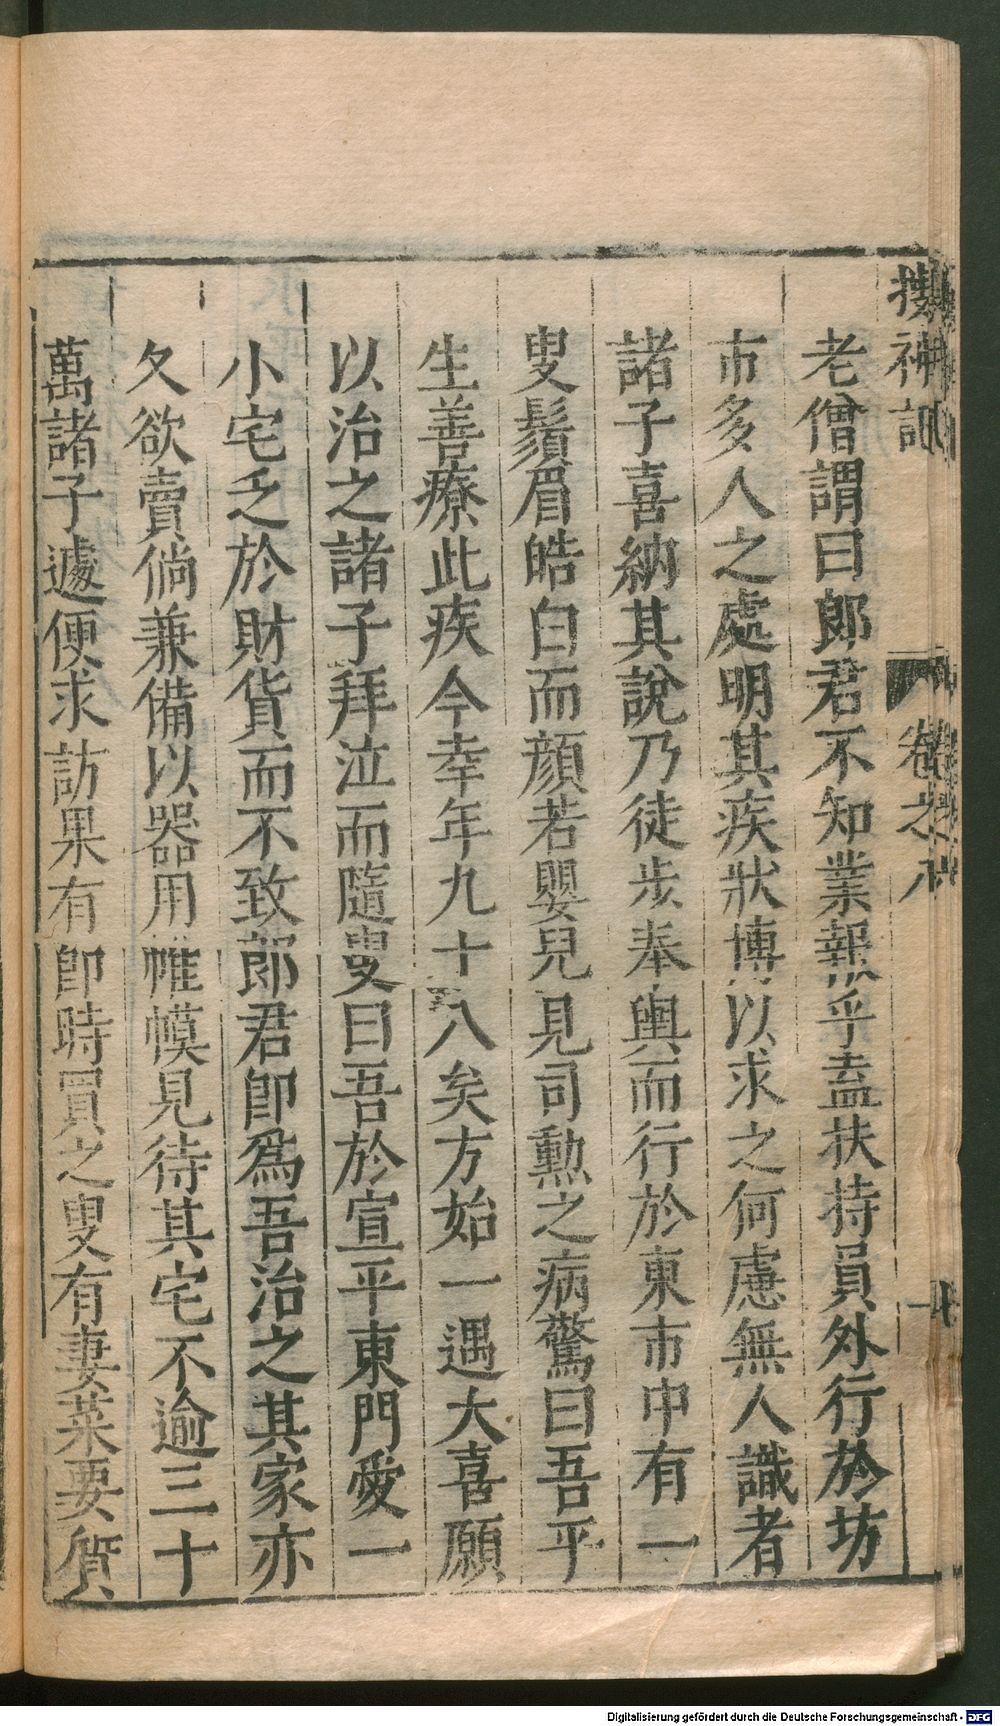 搜神記 卷之八
老僧謂曰郎君不知業報乎盍扶持員外行於坊
市多人之處明其疾狀博以求之何慮無人識者
諸子喜納其說乃徒步奉輿而行於東市中有一
叟鬚眉皓白而顔若嬰兒見司勲之病驚曰吾平
生善療此疾今幸年九十八矣方始一遇大喜願
以治之諸子拜泣而隨叟曰吾於宣平東門愛一
小宅乏於財貨而不致郎君卽爲吾治之其家亦
久欲賣倘兼備以器用帷幙見待其宅不逾三十
萬諸子遽便求訪果有卽時買之叟有妻菜要質
Digitalisierung gefördert durch die Deutsche Forschungsgemeinschaft - DFG